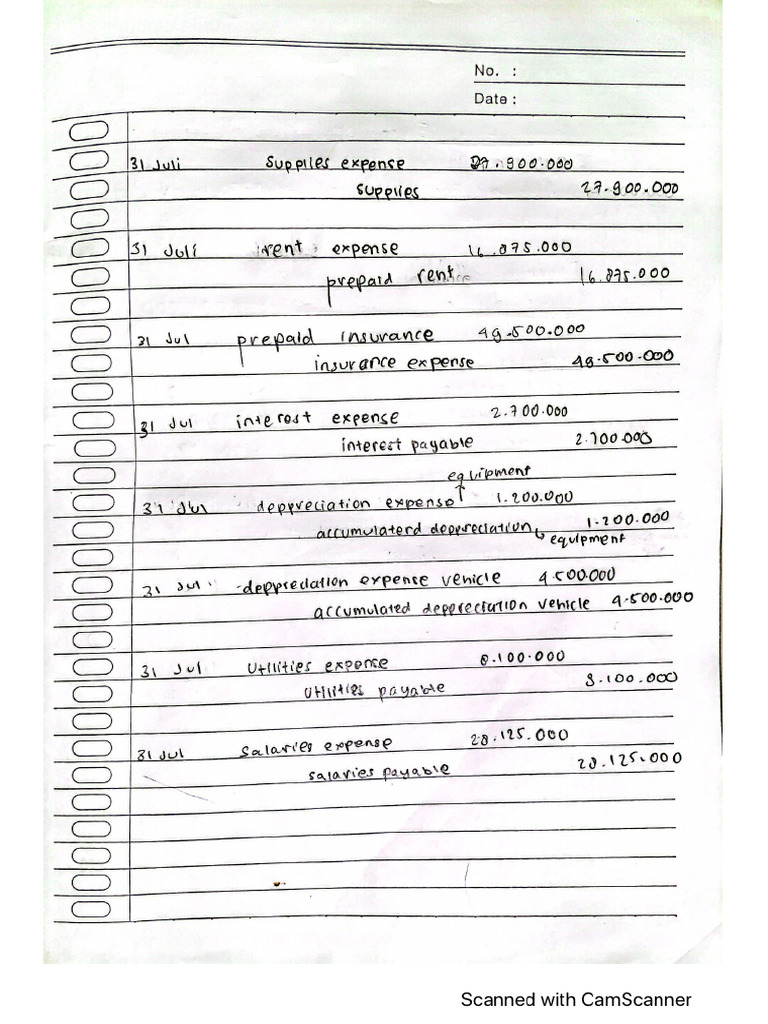 No. :
Date :
31 Juli Supplies expense 27.900.000
Supplies 27.900.000
31 Juli rent expense 16.875.000
prepaid rent 16.875.000
31 Jul prepaid insurance 49.500.000
insurance expense 49.500.000
31 Jul interest expense 2.700.000
interest payable 2.700.000
equipment
31 Jul deppreciation expense 1.200.000
accumulaterd deppreciation 1.200.000
equipment
31 Jul deppreciation expense vehicle 4.500.000
accumulated deppreciation vehicle 4.500.000
31 Jul Utilities expense 8.100.000
Utilities payable 8.100.000
31 Jul Salaries expense 28.125.000
salaries payable 28.125.000
Scanned with CamScanner